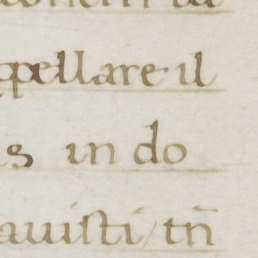 ppellare il
s in do
auisti tn̄